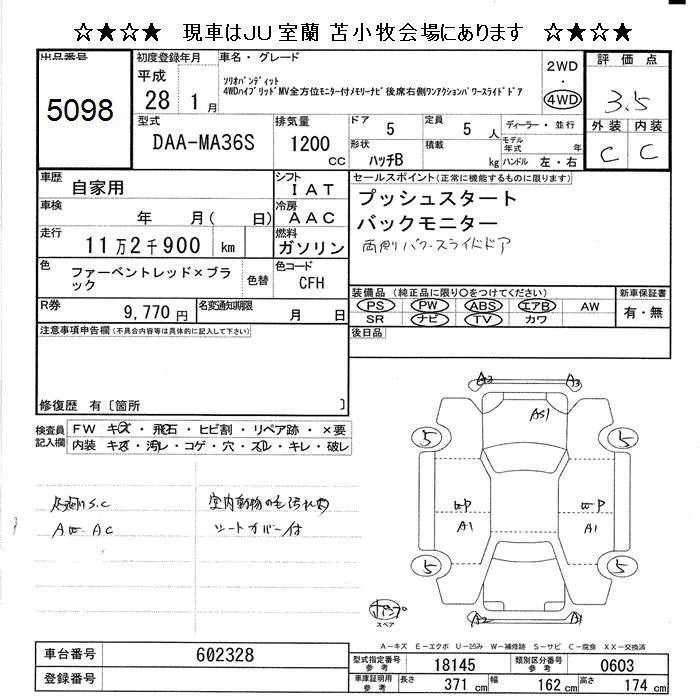 ☆★☆★ 現車はJU室蘭 苫小牧会場にあります ☆★☆★
出品番号
5098
初度登録年月
平成
28 1 月
車名・グレード
ソリオバンディット
4WDハイブリッドMV全方位モニター付メモリーナビ後席右側ワンアクションパワースライドドア
2WD
・
4WD
評価点
3.5
外装 内装
C C
型式
DAA-MA36S
排気量
1200
CC
ドア 5
定員 5 人
形状
ハッチB
積載 kg
ディーラー・並行
モデル年式 年
ハンドル 左・右
車歴 自家用
シフト
IAT
車検 年 月( 日)
冷房
AAC
走行 11万2千900 km
燃料
ガソリン
色 ファーベントレッド×ブラック
色替
色コード
CFH
R券 9,770円
名変通知期限 月 日
セールスポイント(正常に機能するものに限ります)
プッシュスタート
バックモニター
両側パワースライドドア
装備品 (純正品に限り○をつけてください)
PS PW ABS エアB AW
SR ナビ TV カワ
新車保証書
有・無
後日品
注意事項申告欄(不具合内容等は具体的に記入して下さい)
修復歴 有〔箇所 〕
検査員記入欄
FW キズ・飛石・ヒビ割・リペア跡・×要
内装 キズ・汚れ・コゲ・穴・スレ・キレ・破レ
S.C
室内動物の毛汚れ
シートカバー付
A2 A3
AS1
5 5
A1 A1
5 5
A2 A1
スペア
A-キズ E-エクボ U-凹み W-補修跡 S-サビ C-腐食 XX-交換済
車台番号 602328
登録番号
型式指定番号参考 18145
類別区分番号参考 0603
車庫証明用参考
長さ 371 cm 幅 162 cm 高さ 174 cm